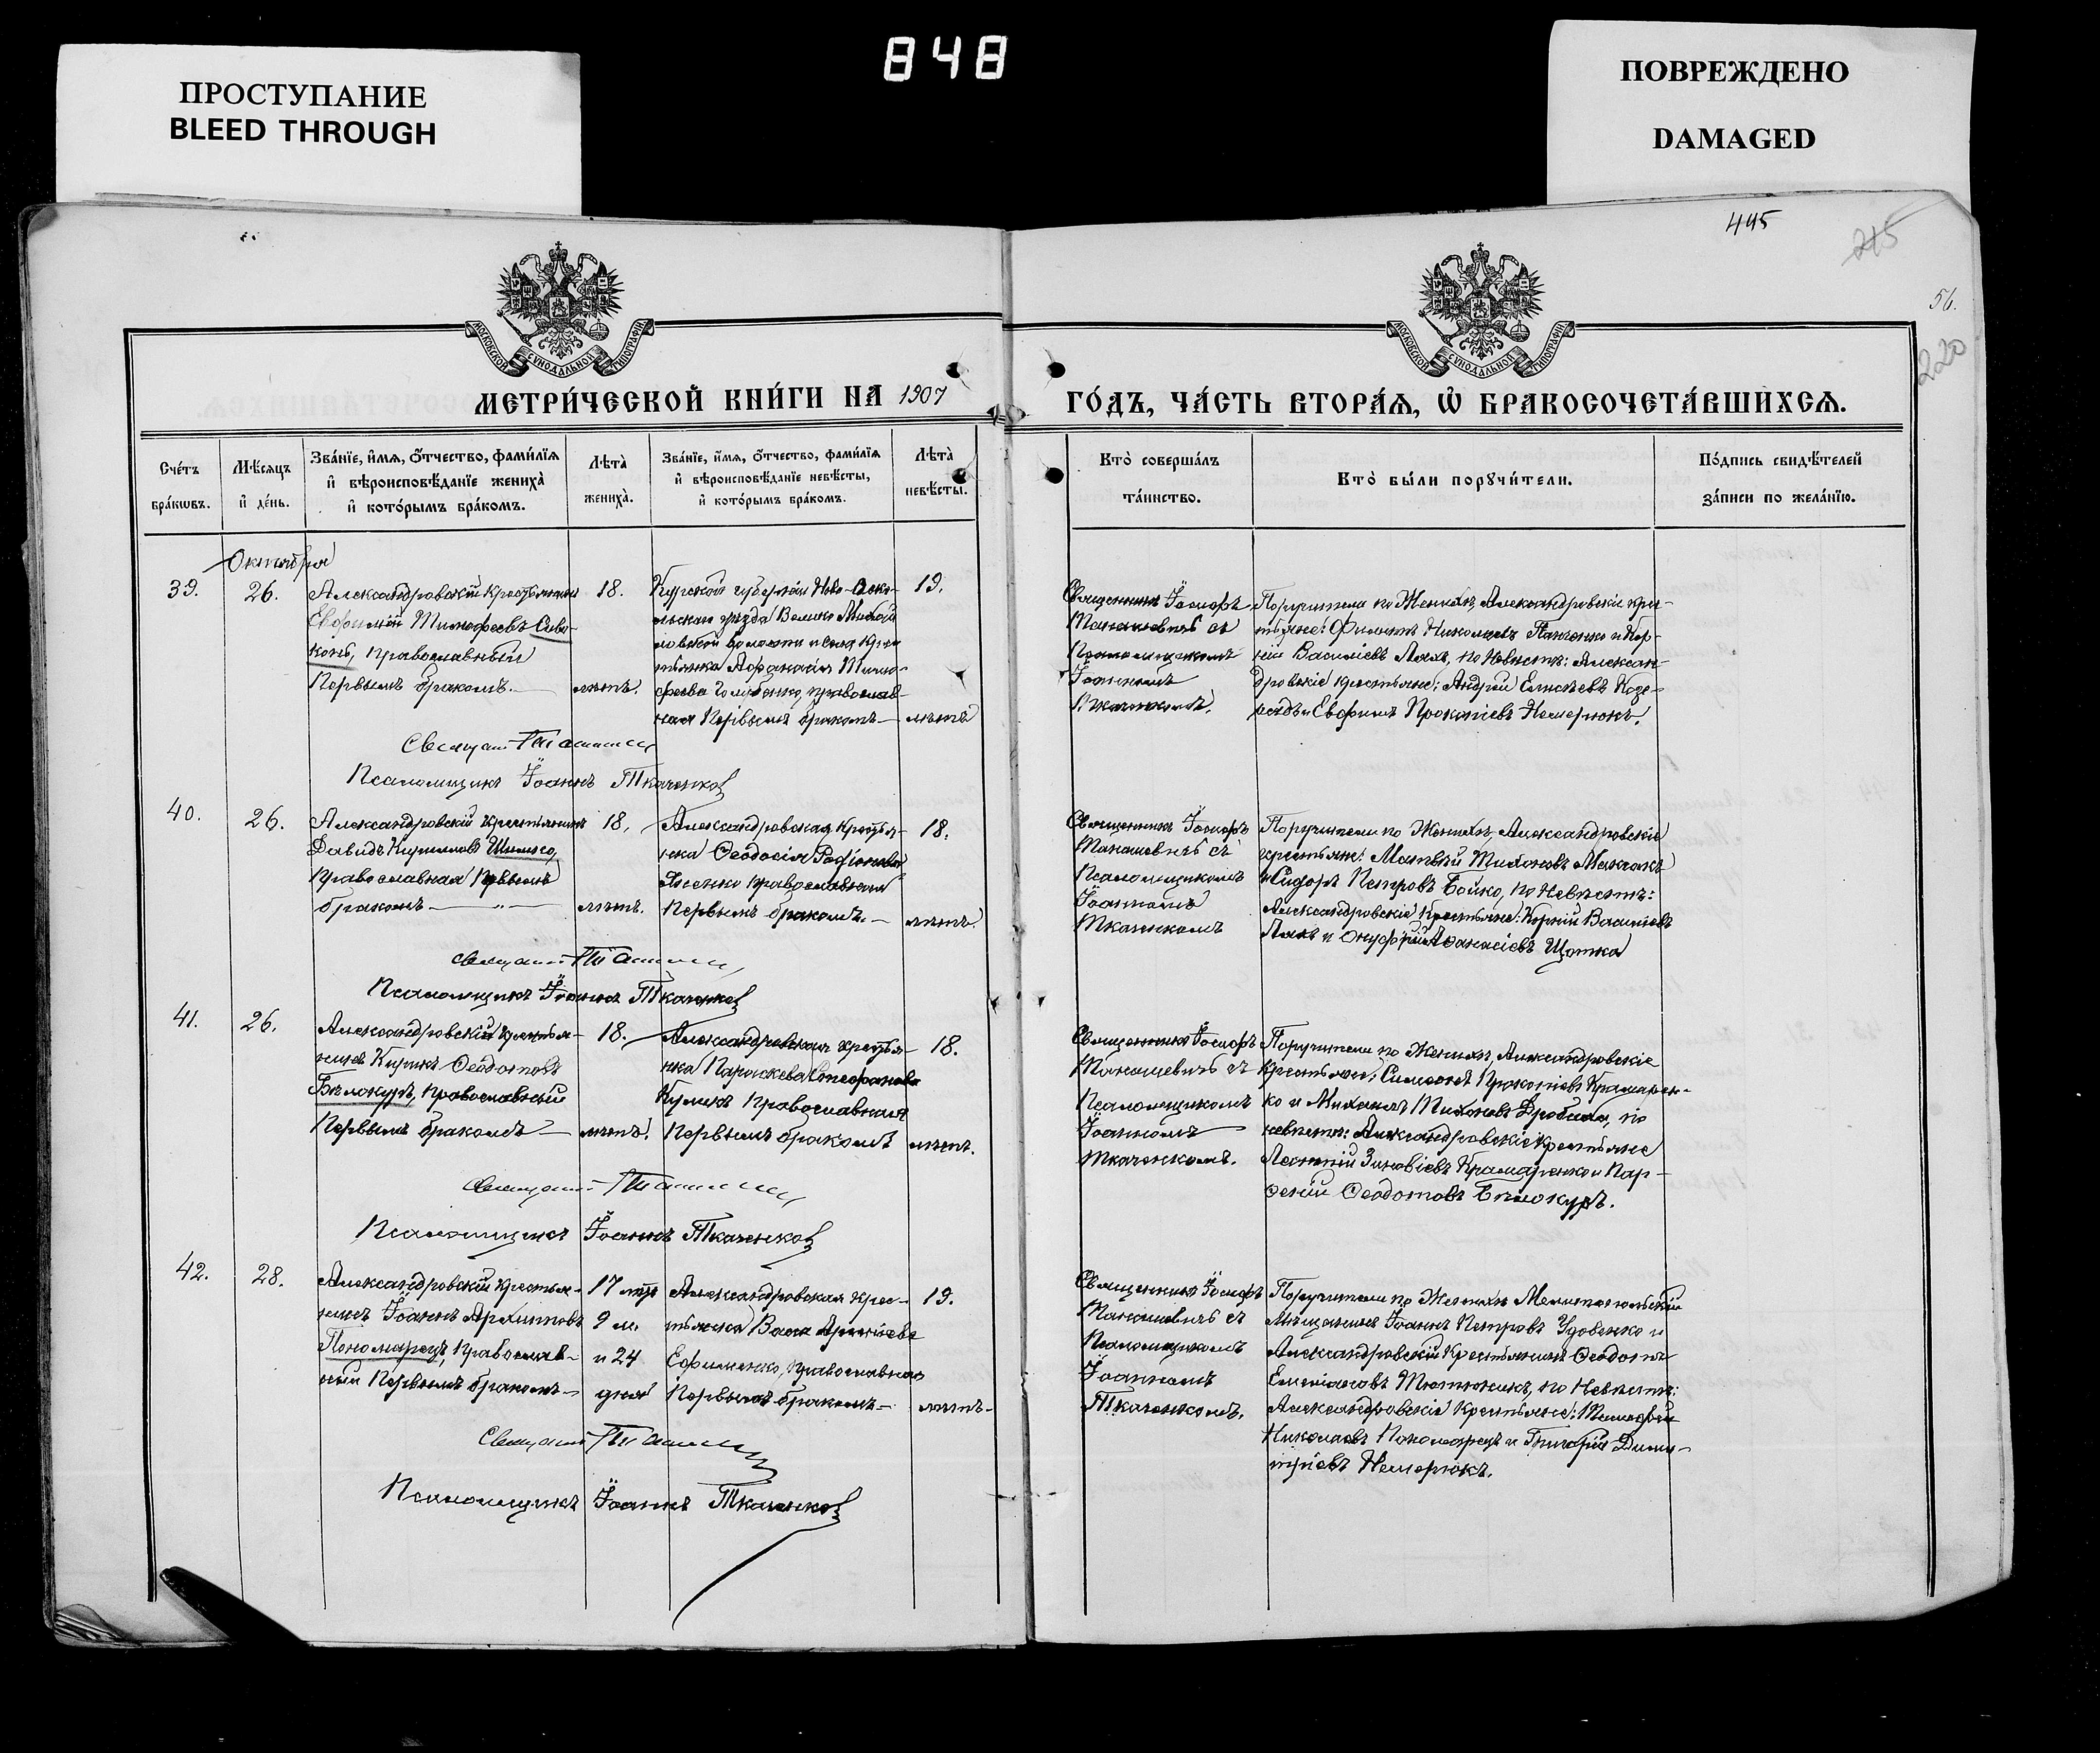 848
ПРОСТУПАНИЕ
BLEED THROUGH
ПОВРЕЖДЕНО
DAMAGED
495
215
56.
220
МОСКОВСКОЙ СѴНОДАЛЬНОЙ ТИПОГРАФІИ
МОСКОВСКОЙ СѴНОДАЛЬНОЙ ТИПОГРАФІИ
МЕТРИ́ЧЕСКОЙ КНИ́ГИ НА 1907
ГО́ДЪ, ЧА́СТЬ ВТОРА́Я, Ѡ҆ БРАКОСОЧЕТА́ВШИХСЯ.
Сче́тъ бра́кѡвъ.
Мѣ́сяцъ и҆ де́нь.
Зва́нїе, и҆́мя, ѻ҆́тчество, фами́лїя
и҆ вѣроисповѣ́данїе жениха̀
и҆ кото́рымъ бра́комъ.
Лѣта̀ жениха̀.
Зва́нїе, и҆́мя, ѻ҆́тчество, фами́лїя
и҆ вѣроисповѣ́данїе невѣ́сты,
и҆ кото́рымъ бра́комъ.
Лѣта̀ невѣ́сты.
Кто̀ соверша́лъ
та́инство.
Кто̀ бы́ли порꙋчи́тели.
По́дпись свидѣ́телей
за́писи по жела́нїю.
Октября
39.
26.
Александровскій крестьянинъ
Евфимій Тимофеевъ Сиво-
конь, православный
Первымъ бракомъ.
18.
лѣтъ.
Курской губерніи Ново-Оско-
льскаго уѣзда Велико Михай
ловской волости и села Крес
тьянка Афанасія Тимо-
феева Голубенко, православ-
ная Первымъ бракомъ
19.
лѣтъ
Священникъ Іосифъ
Манашевичъ съ
Псаломщикомъ
Іоанномъ
Ткаченкомъ.
Поручители по Женихѣ, Александровскіе крес-
тьяне: Филиппъ Николаевъ Панченко и Кор-
ній Василіевъ Ляхъ, по Невѣстѣ: Алексан-
дровскіе крестьяне: Андрей Елисѣевъ Козе-
и Евфимъ Прокопіевъ Нешерюкъ.
Псаломщикъ Іоаннъ Ткаченко
40.
26.
Александровскій крестьянинъ
Давидъ Кирилловъ
Православная Первымъ
бракомъ
18.
лѣтъ.
Александровская Крестья-
нка Ѳеодосія Родіонова
православная
Первымъ бракомъ.
18.
лѣтъ.
Священникъ Іосифъ
Манашевичъ съ
Псаломщикомъ
Іоанномъ
Ткаченкомъ
Поручители по Женихѣ, Александровскіе
крестьяне: Матвѣй Тихоновъ
и Сидоръ Петровъ Бойко, по Невѣстѣ:
Александровскіе Крестьяне: Корній Василіевъ
Ляхъ и Онуфрій Аѳанасіевъ Щотка
Псаломщикъ Іоаннъ Ткаченко
41.
26.
Александровскій крестья-
нинъ Кирикъ Ѳеодотовъ
Бѣлокуръ, православный
Первымъ бракомъ
18.
лѣтъ.
Александровская крестья-
нка Параскева Стефанова
Куликъ православная
Первымъ бракомъ
18.
лѣтъ.
Священникъ Іосифъ
Манашевичъ съ
Псаломщикомъ
Іоанномъ
Ткаченкомъ.
Поручители по Женихѣ, Александровскіе
Крестьяне: Симеонъ Прокопіевъ Крамарен-
ко и Михаилъ Тихоновъ Дробиха, по
невѣстѣ: Александровскіе Крестьяне
Леонтій Зиновіевъ Крамаренко и Пар-
Ѳеодотовъ Бѣлокуръ.
Псаломщикъ Іоаннъ Ткаченко
42.
28.
Александровскій крестья-
нинъ Іоаннъ Архиповъ
Пономарецъ, Православ-
ный Первымъ бракомъ
17 лѣтъ
9 м.
и 24
дней
Александровская крес-
тьянка
Ефименко, православная
Первымъ бракомъ
19.
лѣтъ
Священникъ Іосифъ
Манашевичъ съ
Псаломщикомъ
Іоанномъ
Ткаченкомъ.
Поручители по Женихѣ Мелитопольскій
Мѣщанинъ Іоаннъ Петровъ Удовенко и
Александровскій Крестьянинъ Ѳеодотъ
Тютюникъ, по Невѣстѣ:
Александровскіе Крестьяне: Тимофей
Николаевъ Пономарецъ и Григорій Дими-
тріевъ Нешерюкъ.
Псаломщикъ Іоаннъ Ткаченко